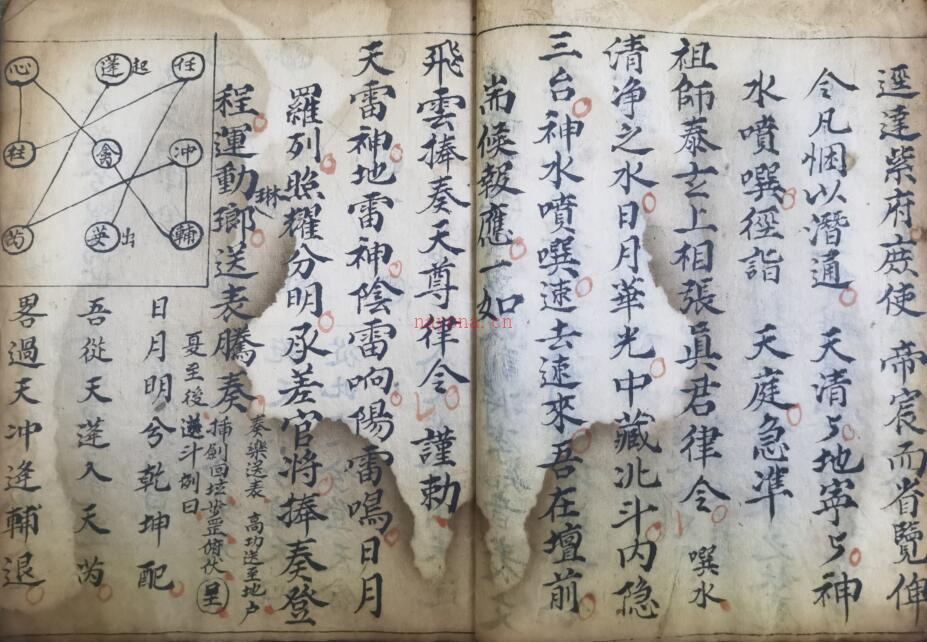 逕達紫府庶使　帝宸而省覽俾
令凡悃以潛通　天清〻地寧〻神
水噴噀徑詣　天庭急準
祖師泰玄上相張眞君律令　噀水
清净之水日月華光中藏北斗内隐
三台神水噴噀速去速來吾在壇前
耑候報應一如
飛雲捧奏天尊律令　謹勅
天雷神地雷神陰雷响陽雷鳴日月
羅列照耀分明承差官将捧奏登
程運動琳瑯送表騰奏
奏樂送表　高功送至地户
揷劍回坛步罡俯伏呈
夏至後遊斗例曰
日月明兮乾坤配
吾從天蓬入天芮
畧過天冲逢輔退
心　蓬起　任
柱　禽　冲
芮　英出　輔
nayona.cn